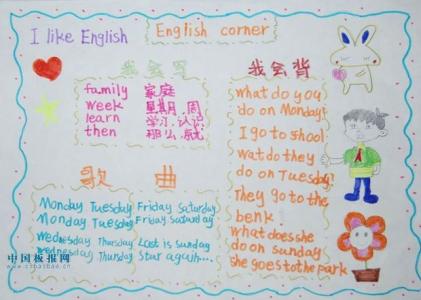 I like English
English corner
我会写
family 家庭
week 星期.周
learn 学习.认识
then 那么.就
我会背
what do you
do on Monday!
I go to shool
wat do they
do on Tuesday!
They go to the
benk
what does she
do on sunday
she goes to the park
歌 曲
Monday Tuesday Friday Saturday
Monday Tuesday Friday Saturday
Wednesday Thursday Last is sunday
Wednesday Thursday Star again...
中国板报网